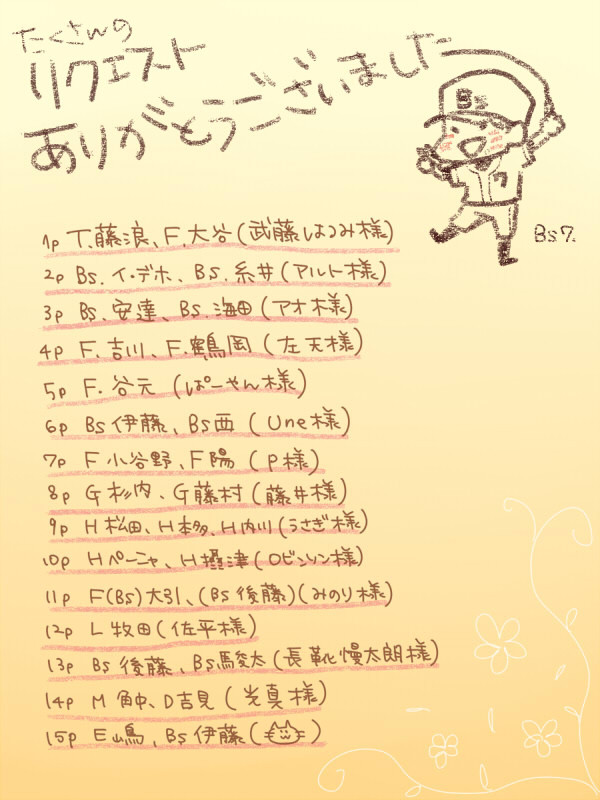 たくさんの
リクエスト
ありがとうございました
Bs
7
Bs7.
1p T.藤浪、F.大谷(武藤はつみ様)
2p Bs.イ・デホ、Bs.糸井(アルト様)
3p Bs.安達、Bs.海田(アオ様)
4p F.吉川、F.鶴岡(左天様)
5p F.谷元(ぱーやん様)
6p Bs伊藤、Bs西(Une様)
7p F小谷野、F陽(P様)
8p G杉内、G藤村(藤井様)
9p H松田、H本多、H内川(うさぎ様)
10p Hペーニャ、H摂津(ロビンソン様)
11p F(Bs)大引、(Bs後藤)(みのり様)
12p L牧田(佐平様)
13p Bs後藤、Bs駿太(長靴慢太朗様)
14p M角中、D吉見(光真様)
15p E嶋、Bs伊藤()